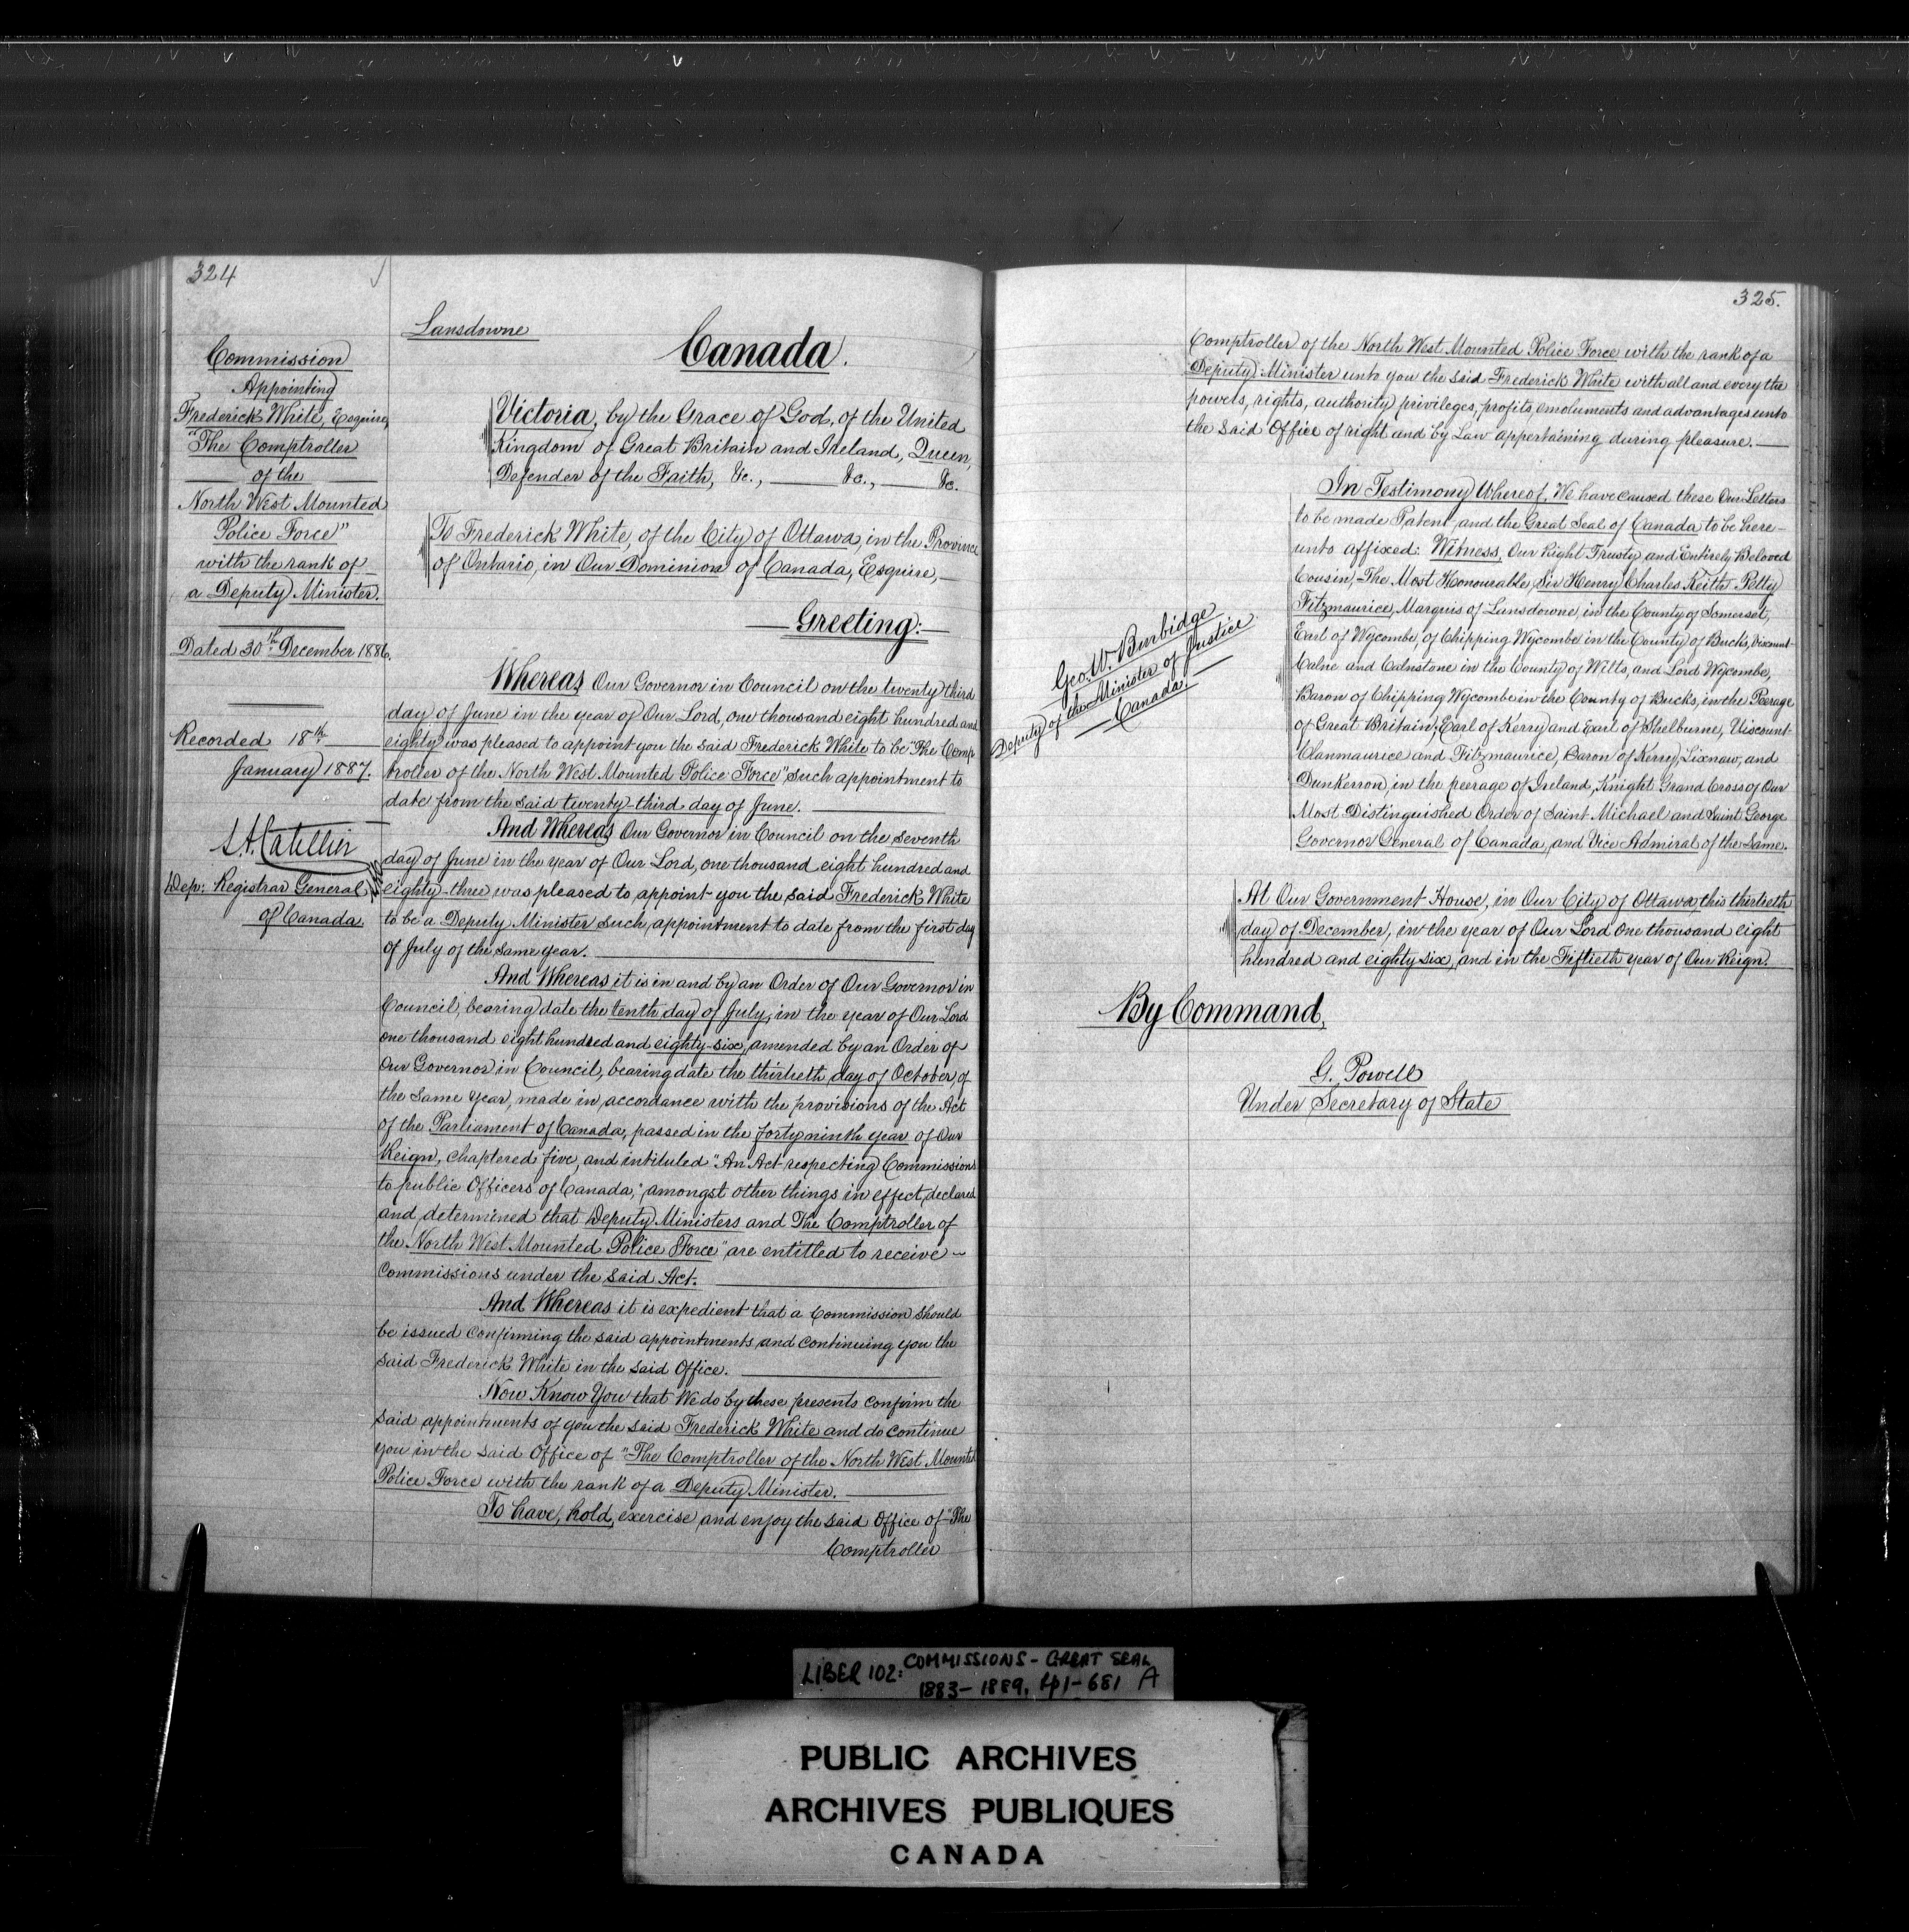 324
Commission
Appointing
Frederick White, Esquire,
"The Comptroller
of the
North West Mounted
Police Force"
with the rank of
a Deputy Minister.
Dated 30th December 1886.
Recorded 18th
January 1887.
L.A. Catellier
Dep: Registrar General
of Canada
Lansdowne
Canada.
Victoria, by the Grace of God, of the United
Kingdom of Great Britain and Ireland, Queen,
Defender of the Faith, &c., &c., &c.
To Frederick White, of the City of Ottawa, in the Province
of Ontario, in Our Dominion of Canada, Esquire,
Greeting:
Whereas Our Governor in Council on the twenty third
day of June in the year of Our Lord, one thousand eight hundred and
eighty was pleased to appoint you the said Frederick White to be "The Comp-
troller of the North West Mounted Police Force" such appointment to
date from the said twenty-third day of June.
And Whereas Our Governor in Council on the seventh
day of June in the year of Our Lord, one thousand eight hundred and
eighty-three was pleased to appoint you the said Frederick White
to be a Deputy Minister such appointment to date from the first day
of July of the same year.
And Whereas it is in and by an Order of Our Governor in
Council, bearing date the tenth day of July, in the year of Our Lord
one thousand eight hundred and eighty-six, amended by an Order of
Our Governor in Council, bearing date the thirtieth day of October, of
the same year, made in accordance with the provisions of the Act
of the Parliament of Canada, passed in the forty ninth year of Our
Reign, chaptered five, and intituled "An Act respecting Commissions
to public Officers of Canada," amongst other things in effect, declared
and determined that Deputy Ministers and The Comptroller of
the North West Mounted Police Force" are entitled to receive
Commissions under the said Act.
And Whereas it is expedient that a Commission should
be issued confirming the said appointments and continuing you the
said Frederick White in the said Office.
Now Know You that We do by these presents confirm the
said appointments of you the said Frederick White and do continue
you in the said Office of "The Comptroller of the North West Mounted
Police Force with the rank of a Deputy Minister.
To have, hold, exercise and enjoy the said Office of "The
Comptroller
325.
Comptroller of the North West Mounted Police Force with the rank of a
Deputy Minister unto you the said Frederick White with all and every the
powers, rights, authority, privileges, profits, emoluments and advantages unto
the said Office of right and by Law appertaining during pleasure.
Geo. W. Burbidge
Deputy of the Minister of Justice
Canada.
In Testimony Whereof, We have caused these Our Letters
to be made Patent and the Great Seal of Canada to be here-
unto affixed: Witness, Our Right Trusty and Entirely Beloved
Cousin, The Most Honourable Sir Henry Charles Keith Petty
Fitzmaurice, Marquis of Lansdowne, in the County of Somerset,
Earl of Wycombe, of Chipping Wycombe in the County of Bucks, Viscount
Calne and Calnstone in the County of Wilts, and Lord Wycombe,
Baron of Chipping Wycombe in the County of Bucks, in the Peerage
of Great Britain; Earl of Kerry and Earl of Shelburne, Viscount
Clanmaurice and Fitzmaurice, Baron of Kerry, Lixnaw, and
Dunkerron, in the peerage of Ireland, Knight Grand Cross of Our
Most Distinguished Order of Saint Michael and Saint George
Governor General of Canada, and Vice Admiral of the Same.
At Our Government House, in Our City of Ottawa, this thirtieth
day of December, in the year of Our Lord one thousand eight
hundred and eighty six, and in the Fiftieth year of Our Reign.
By Command,
G. Powell
Under Secretary of State
LIBER 102: COMMISSIONS - GREAT SEAL
1883-1889, pp1-681 A
PUBLIC ARCHIVES
ARCHIVES PUBLIQUES
CANADA